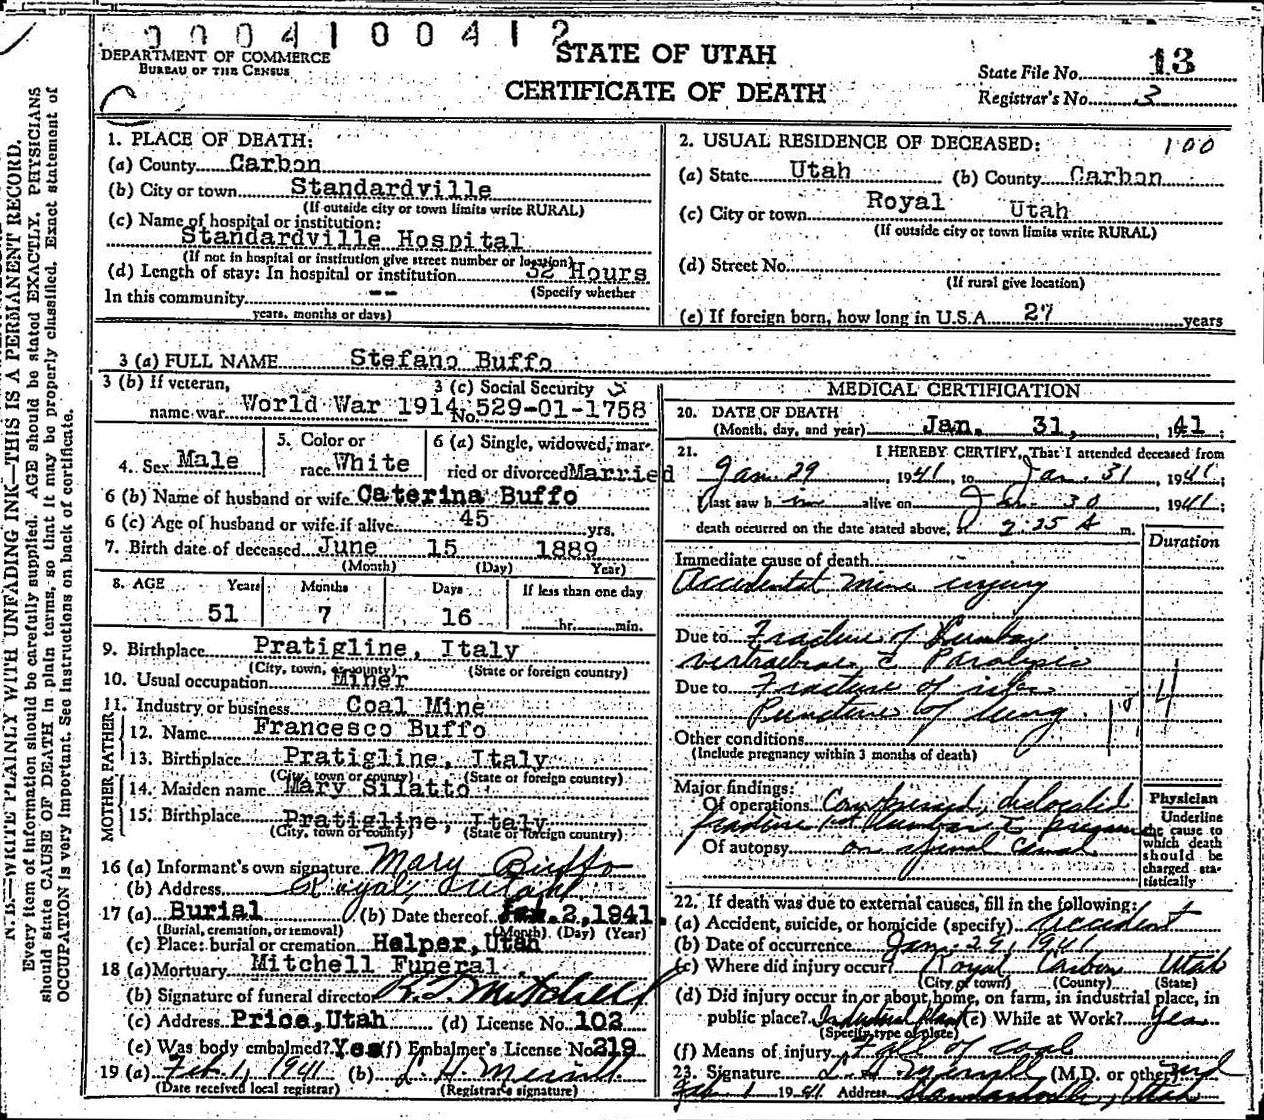 0004100412
DEPARTMENT OF COMMERCE
BUREAU OF THE CENSUS
STATE OF UTAH
CERTIFICATE OF DEATH
State File No. 13
Registrar's No. 3
N. B.—WRITE PLAINLY WITH UNFADING INK—THIS IS A PERMANENT RECORD.
Every item of information should be carefully supplied. AGE should be stated EXACTLY. PHYSICIANS
should state CAUSE OF DEATH in plain terms, so that it may be properly classified. Exact statement of
OCCUPATION is very important. See instructions on back of certificate.
1. PLACE OF DEATH:
(a) County Carbon
(b) City or town Standardville
(If outside city or town limits write RURAL)
(c) Name of hospital or institution:
Standardville Hospital
(If not in hospital or institution give street number or location)
(d) Length of stay: In hospital or institution 52 Hours
(Specify whether
In this community --
years, months or days)
2. USUAL RESIDENCE OF DECEASED: 100
(a) State Utah (b) County Carbon
(c) City or town Royal Utah
(If outside city or town limits write RURAL)
(d) Street No.
(If rural give location)
(e) If foreign born, how long in U.S.A. 27 years
3 (a) FULL NAME Stefano Buffo
3 (b) If veteran, 3 (c) Social Security
name war World War 1914 No. 529-01-1758
4. Sex Male
5. Color or
race White
6 (a) Single, widowed, mar-
ried or divorced Married
6 (b) Name of husband or wife Caterina Buffo
6 (c) Age of husband or wife if alive 45 yrs.
7. Birth date of deceased June 15 1889
(Month) (Day) Year)
8. AGE Years Months Days If less than one day
51 7 16 hr. min.
9. Birthplace Pratigline, Italy
(City, town, or county) (State or foreign country)
10. Usual occupation Miner
11. Industry or business Coal Mine
FATHER
12. Name Francesco Buffo
13. Birthplace Pratigline, Italy
(City, town or county) (State or foreign country)
MOTHER
14. Maiden name Mary Silatto
15. Birthplace Pratigline, Italy
(City, town or county) (State or foreign country)
16 (a) Informant's own signature Mary Buffo
(b) Address Royal, Utah
17 (a) Burial (b) Date thereof 2, 1941.
(Burial, cremation, or removal) (Month) (Day) (Year)
(c) Place: burial or cremation Helper, Utah
18 (a) Mortuary Mitchell Funeral
(b) Signature of funeral director Mitchell
(c) Address Price, Utah (d) License No. 102
(e) Was body embalmed? Yes (f) Embalmer's License No. 219
19 (a) Feb 1, 1941 (b) L. H. Merrill
(Date received local registrar) (Registrar's signature)
MEDICAL CERTIFICATION
20. DATE OF DEATH
(Month, day, and year) Jan. 31, 1941;
21. I HEREBY CERTIFY, That I attended deceased from
Jan. 29, 1941, to Jan. 31 1941;
I last saw him alive on Jan. 30 1941;
death occurred on the date stated above, at 2:25 A m.
Duration
Immediate cause of death
Accidental mine injury
Due to Fracture of Lumbar
vertraebrae c Paralysis
Due to Fracture of ribs
Puncture of lung.
Other conditions
(Include pregnancy within 3 months of death)
Major findings:
Of operations Compressed, dislocated
fracture 1st Lumbar c pressure
Of autopsy on spinal canal
Physician
Underline
the cause to
which death
should be
charged sta-
tistically
22. If death was due to external causes, fill in the following:
(a) Accident, suicide, or homicide (specify) Accident
(b) Date of occurrence Jan. 29, 1941
(c) Where did injury occur? Royal Carbon Utah
(City or town) (County) (State)
(d) Did injury occur in or about home, on farm, in industrial place, in
public place? Industrial Plant (e) While at Work? Yes
(Specify type of place)
(f) Means of injury Fall of coal
23. Signature L. H. Merrill (M.D. or other) md
Feb 1 1941 Address Standardville, Utah